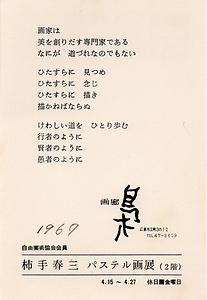 画家は
美を創りだす専門家である
なにが 道づれなのでもない
ひたすらに 見つめ
ひたすらに 念じ
ひたすらに 描き
描かねばならぬ
けわしい道を ひとり歩む
行者のように
賢者のように
愚者のように
画廊
1967
自由美術協会会員
柿手春三 パステル画展(2階)
4.15 ~ 4.27 休日■金曜日